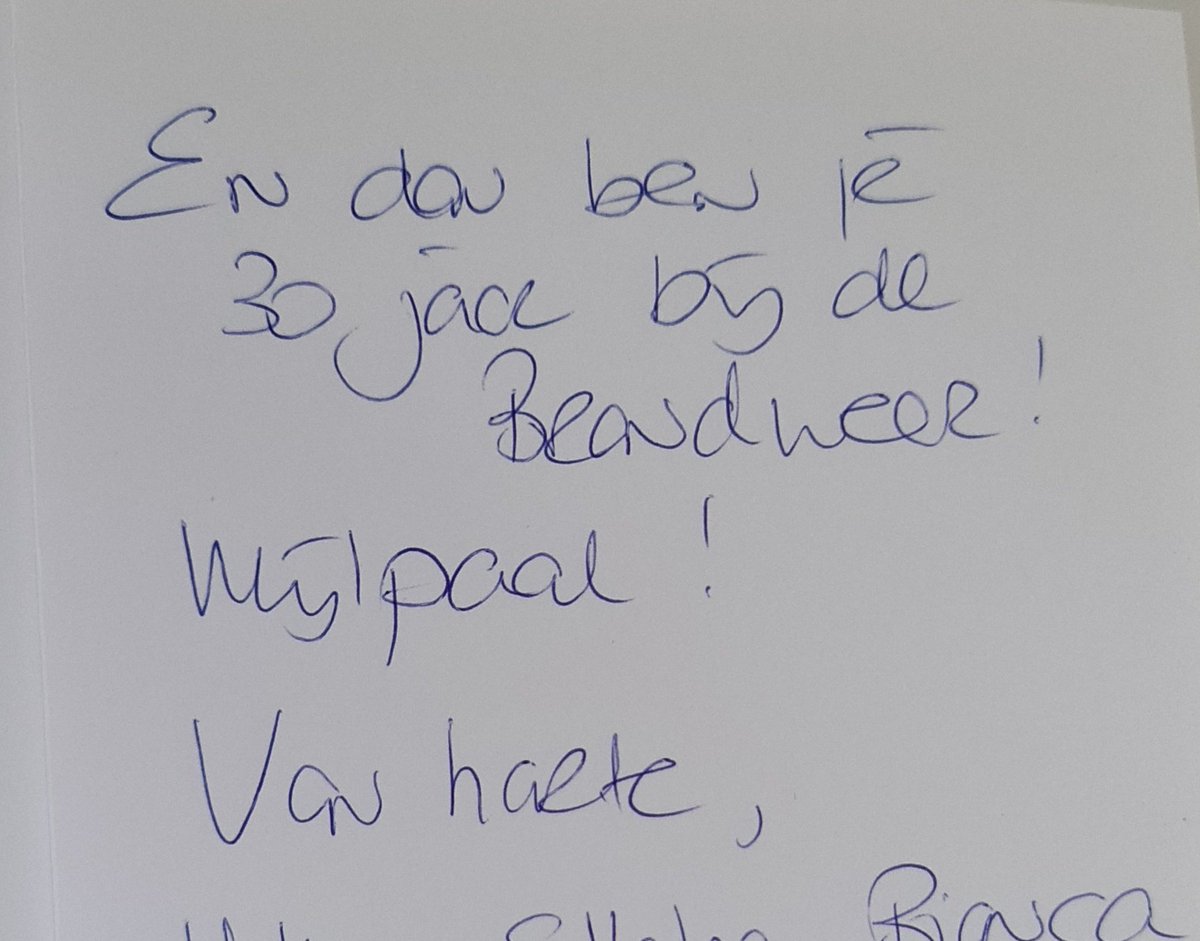 En dan ben je
30 jaar bij de
Brandweer!
Mijlpaal!
Van harte,
Bianca